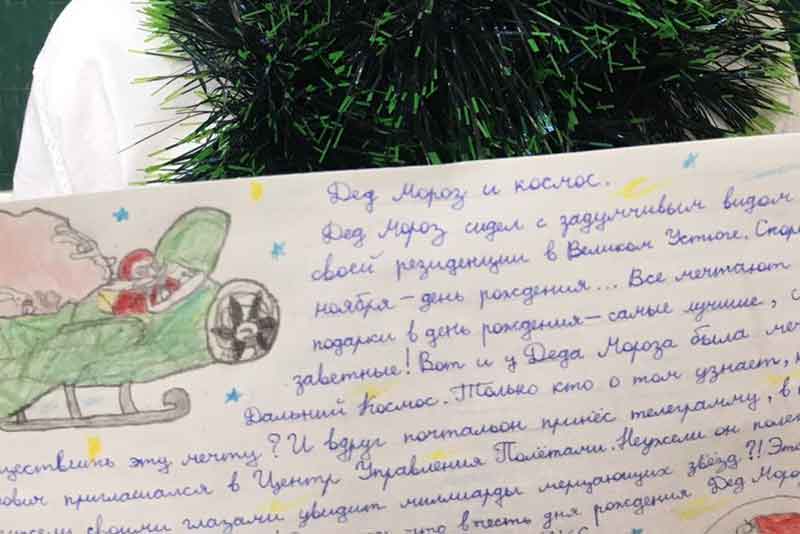 Дед Мороз и космос.
Дед Мороз сидел с задумчивым видом
своей резиденции в Великом Устюге.
ноября – день рождения... Все мечтают
подарки в день рождения – самые лучшие,
заветные! Вот и у Деда Мороза была
Дальний Космос. Только кто о том узнает,
эту мечту? И вдруг почтальон принёс телеграмму, в
приглашался в Центр Управления Полётами. Неужели он
своими глазами увидит миллиарды мерцающих звёзд?!
что в честь дня рождения Дед